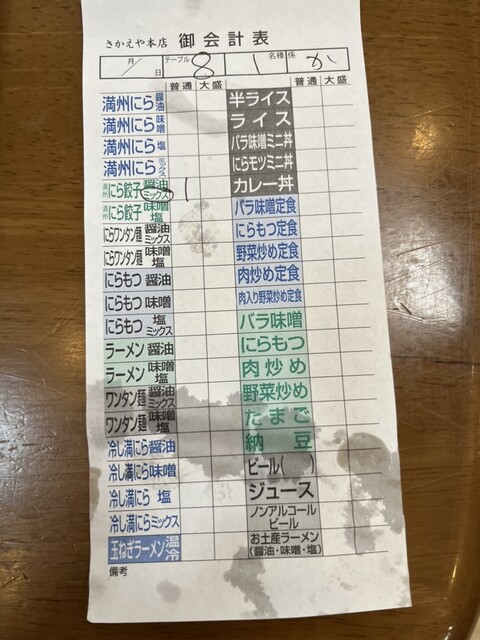 さかえや本店 御会計表
月/日 テーブル 8 1 名様 係 か
普通 大盛 普通 大盛
満州にら 醤油
満州にら 味噌
満州にら 塩
満州にら ミックス
満州にら餃子 醤油 ミックス 1
満州にら餃子 味噌 塩
にらワンタン麺 醤油 ミックス
にらワンタン麺 味噌 塩
にらもつ 醤油
にらもつ 味噌
にらもつ 塩 ミックス
ラーメン 醤油
ラーメン 味噌 塩
ワンタン麺 醤油 ミックス
ワンタン麺 味噌 塩
冷し満にら 醤油
冷し満にら 味噌
冷し満にら 塩
冷し満にら ミックス
玉ねぎラーメン 温 冷
備考
半ライス
ライス
バラ味噌ミニ丼
にらモツミニ丼
カレー丼
バラ味噌定食
にらもつ定食
野菜炒め定食
肉炒め定食
肉入り野菜炒め定食
バラ味噌
にらもつ
肉炒め
野菜炒め
たまご
納豆
ビール( )
ジュース
ノンアルコール
ビール
お土産ラーメン
(醤油・味噌・塩)